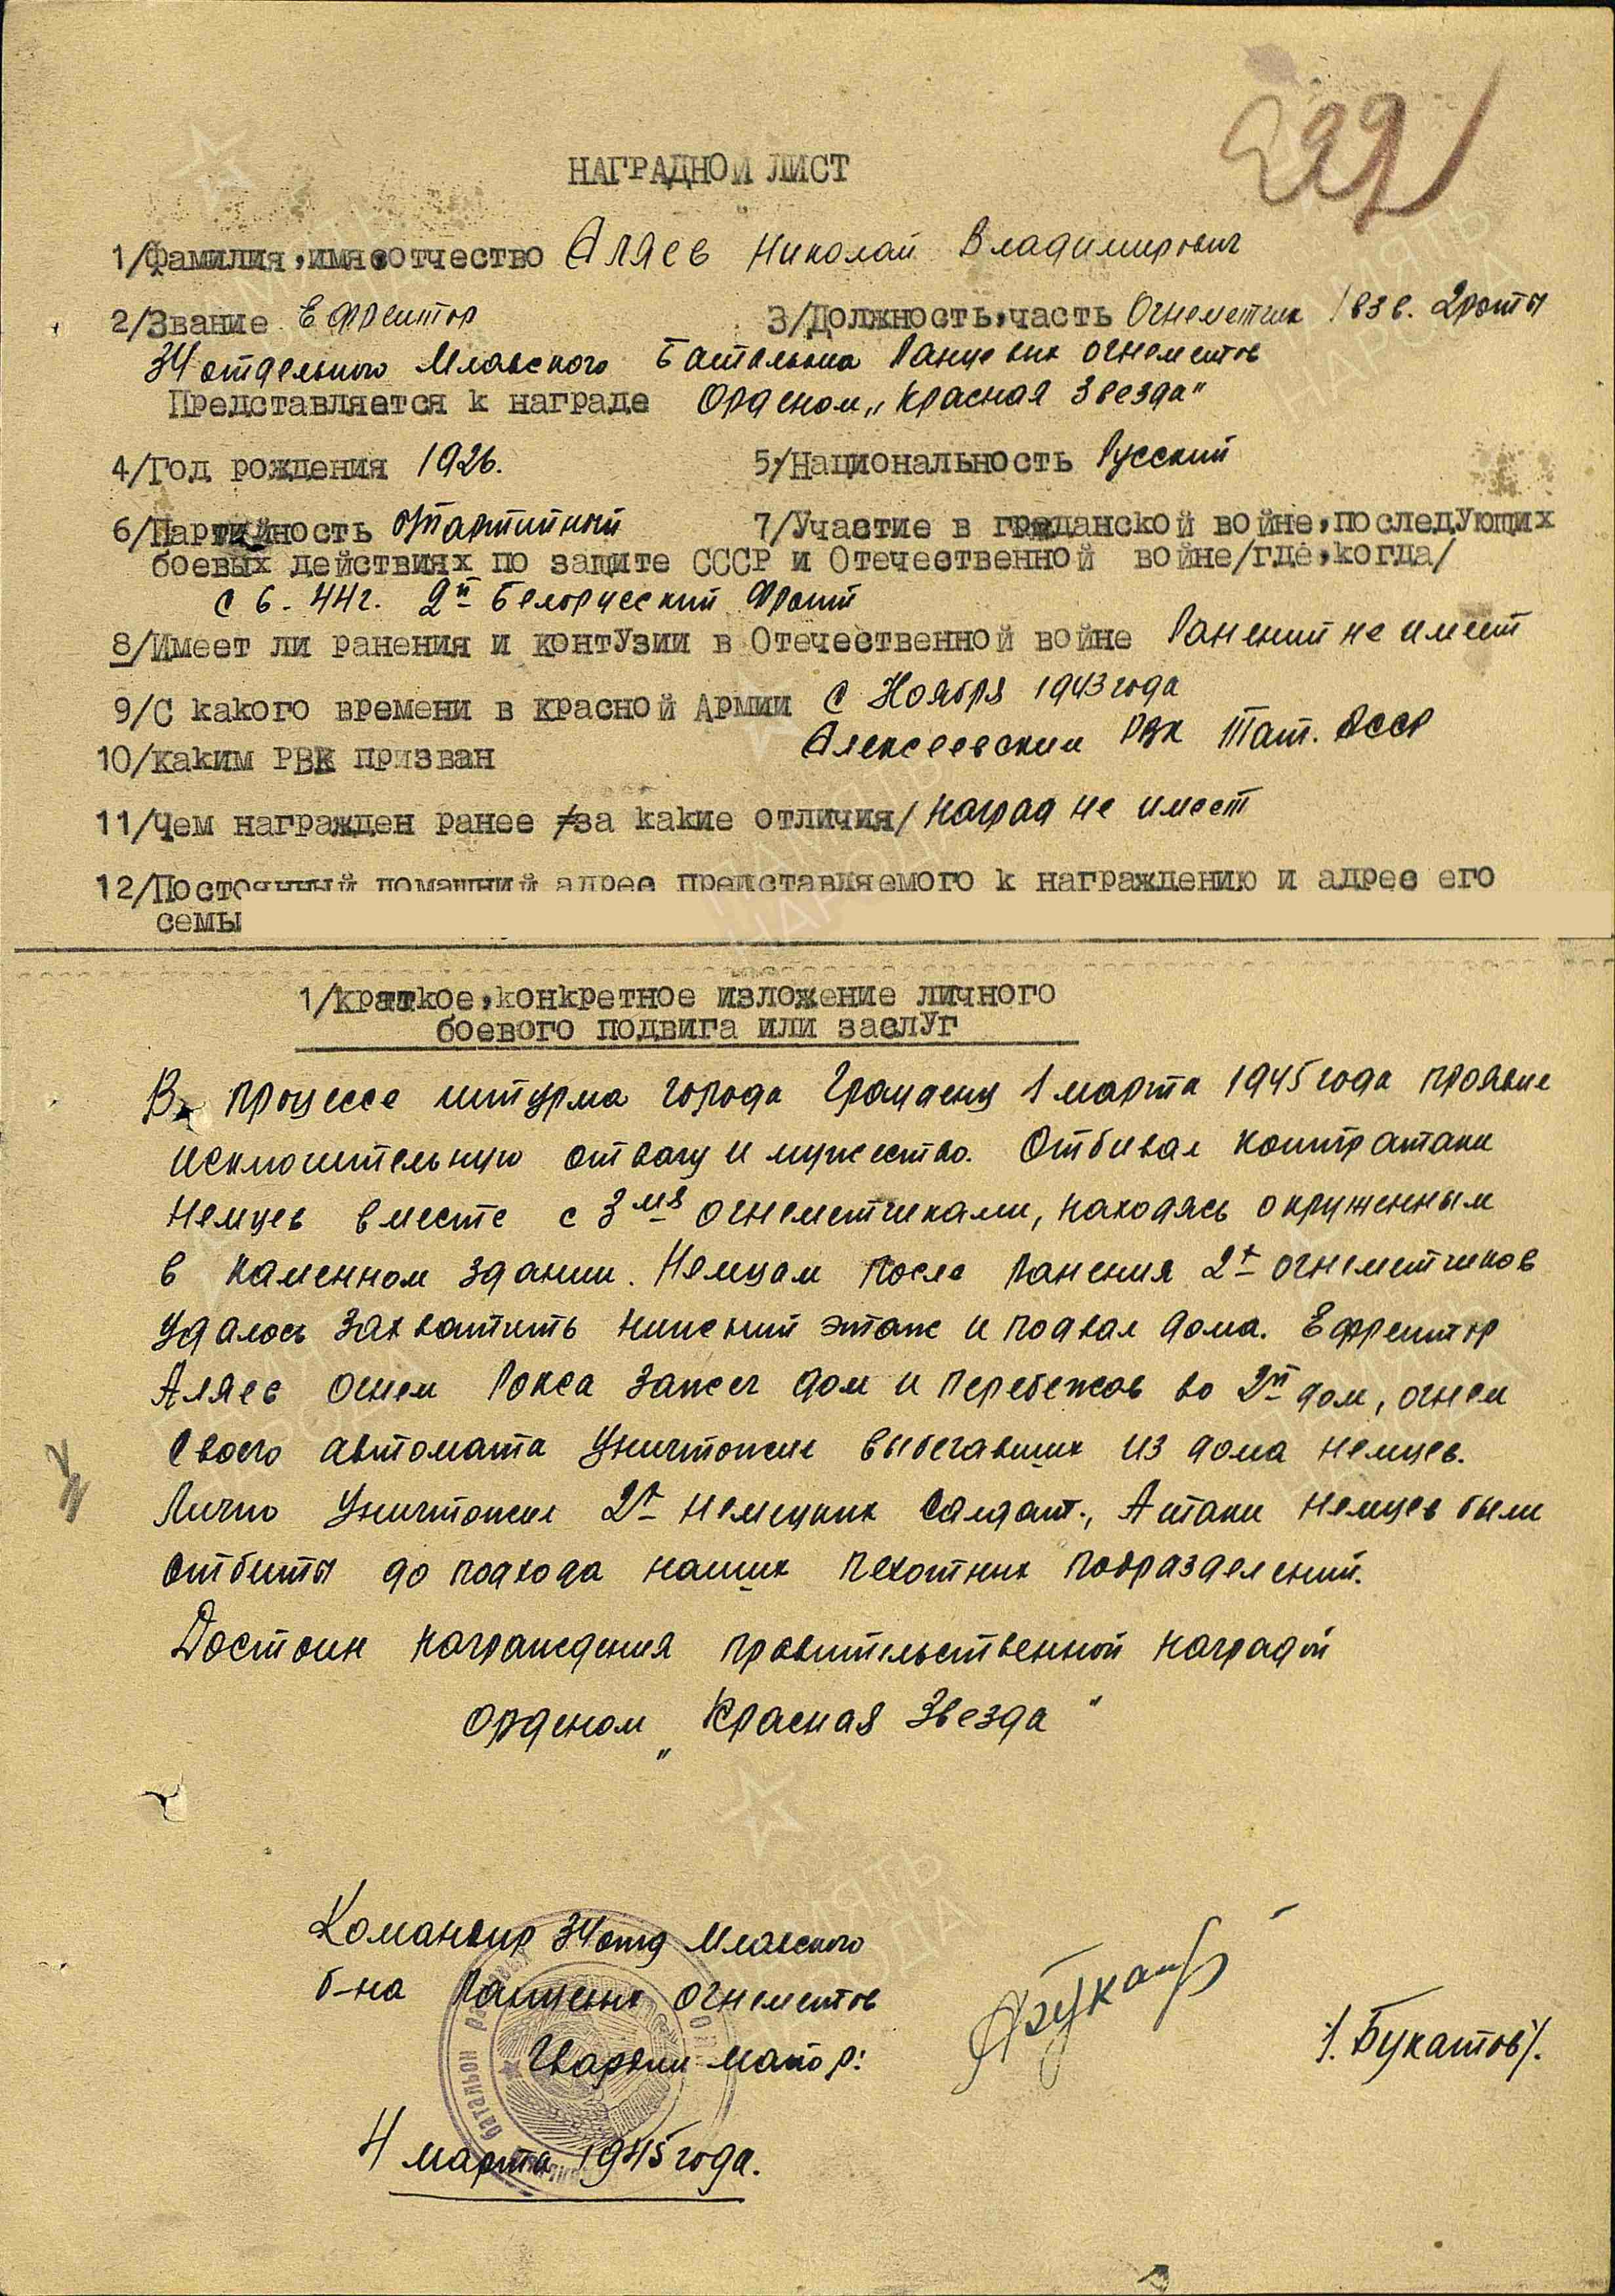 221
НАГРАДНОЙ ЛИСТ
1/Фамилия,имя,отчество Аляев Николай Владимирович
2/Звание Ефрейтор 3/Должность,часть Огнеметчик 1 взв. 2 роты
34 отдельного Млавского Батальона Ранцевых огнеметов
Представляется к награде Орденом „Красная Звезда"
4/Год рождения 1926. 5/Национальность Русский
6/Партийность б/партийный 7/Участие в гражданской войне,последующих
боевых действиях по защите СССР и Отечественной войне/где,когда/
с 6.44г. 2й Белорусский Фронт
8/Имеет ли ранения и контузии в Отечественной войне Ранений не имеет
9/С какого времени в красной Армии с Ноября 1943 года
10/каким РВК призван Алексеевским РВК Тат. АССР
11/чем награжден ранее /за какие отличия/ наград не имеет
12/Постоянный домашний адрес представляемого к награждению и адрес его
семьи
1/краткое,конкретное изложение личного
боевого подвига или заслуг
В процессе штурма города Грауденц 1 марта 1945 года проявил
исключительную отвагу и мужество. Отбивал контратаки
немцев вместе с 3мя огнеметчиками, находясь окруженным
в каменном здании. Немцам после ранения 2х огнеметчиков
удалось захватить нижний этаж и подвал дома. Ефрейтор
Аляев огнем Рокса зажег дом и перебежав во 2й дом, огнем
своего автомата уничтожил выбегавших из дома немцев.
Лично уничтожил 2х немецких солдат., Атаки немцев были
отбиты до подхода наших пехотных подразделений.
Достоин награждения правительственной наградой
орденом „Красная Звезда"
Командир 34 отд Млавского
б-на Ранцевых огнеметов
Гвардии майор: /.Букатов/.
4 марта 1945 года.
ПАМЯТЬ
НАРОДА